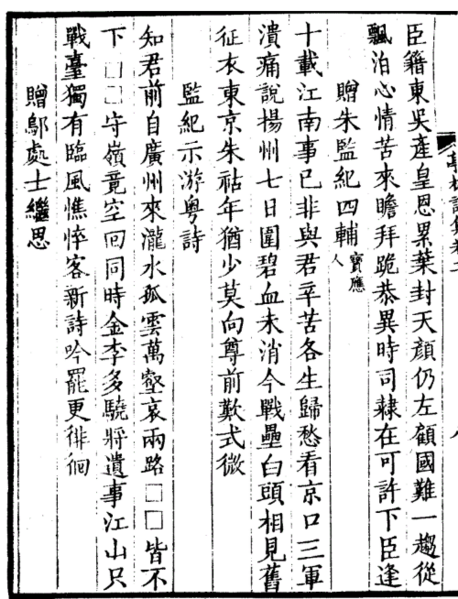 臣籍東吳産皇恩累葉封天顔仍左顧國難一趨從
飄泊心情苦來瞻拜跪恭異時司隸在可許下臣逢
贈朱監紀四輔寶應人
十載江南事已非與君辛苦各生歸愁看京口三軍
潰痛說揚州七日圍碧血未消今戰壘白頭相見舊
征衣東京朱祜年猶少莫向尊前歎式微
監紀示游粤詩
知君前自廣州來瀧水孤雲萬壑哀兩路□□皆不
下□□守嶺竟空回同時金李多驍將遺事江山只
戰臺獨有臨風憔悴客新詩吟罷更徘徊
贈鄔處士繼思